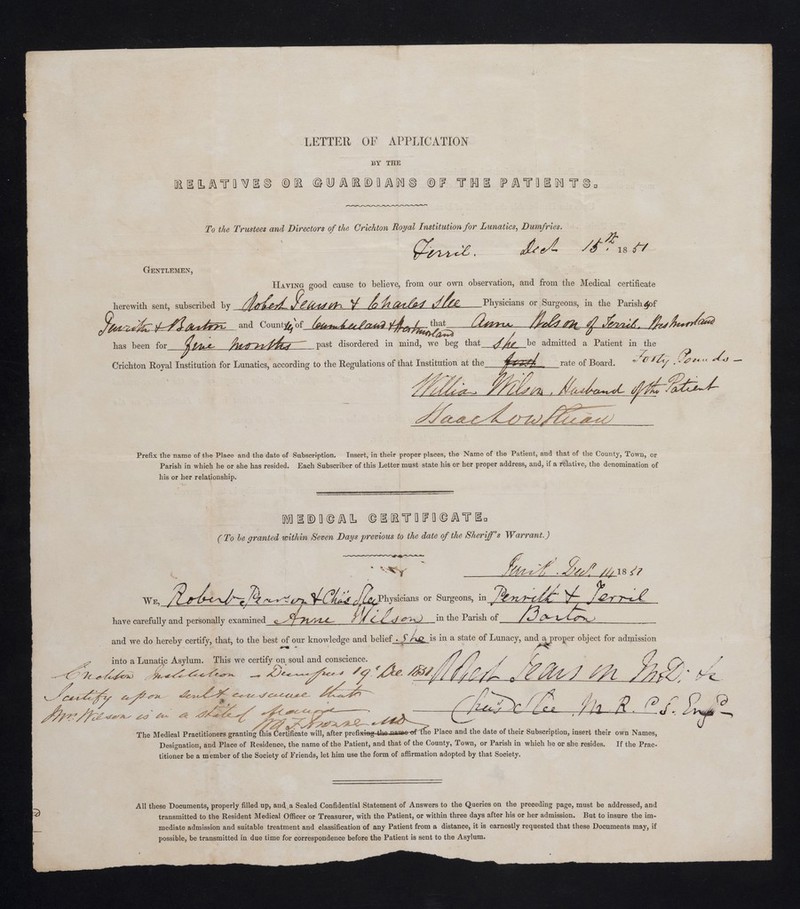 LETTER OF APPLICATION
BY THE
RELATIVES OR GUARDIANS OF THE PATIENTS.
To the Trustees and Directors of the Crichton Royal Institution for Lunatics, Dumfries.
Terril. Dect 15th 1851
GENTLEMEN,
HAVING good cause to believe, from our own observation, and from the Medical certificate
herewith sent, subscribed by Robert Pearson & Charles Slee Physicians or Surgeons, in the Parish of
Penrith & Barton and County of Cumberland & Westmorland that Anne Wilson of Terril. Westmorland
has been for five months past disordered in mind, we beg that She be admitted a Patient in the
Crichton Royal Institution for Lunatics, according to the Regulations of that Institution at the rate of Board. Forty Pounds —
William Wilson. Husband of the Patient
Isaac
Prefix the name of the Place and the date of Subscription. Insert, in their proper places, the Name of the Patient, and that of the County, Town, or
Parish in which he or she has resided. Each Subscriber of this Letter must state his or her proper address, and, if a relative, the denomination of
his or her relationship.
MEDICAL CERTIFICATE.
(To be granted within Seven Days previous to the date of the Sheriff's Warrant.)
Dec. 14 1851
WE, Robert Pearson & Chas Slee Physicians or Surgeons, in Penrith & Terril
have carefully and personally examined Anne Wilson in the Parish of Barton
and we do hereby certify, that, to the best of our knowledge and belief She is in a state of Lunacy, and a proper object for admission
into a Lunatic Asylum. This we certify on soul and conscience.
Crichton Institution Dumfries 19 Dec 1851
Robert Pearson M.D.
I certify upon soul & conscience that
Chas Slee M.R.C.S. Engd
Mrs Wilson is in a state of
W A F Browne MD
The Medical Practitioners granting this Certificate will, after prefixing the name of the Place and the date of their Subscription, insert their own Names,
Designation, and Place of Residence, the name of the Patient, and that of the County, Town, or Parish in which he or she resides. If the Prac-
titioner be a member of the Society of Friends, let him use the form of affirmation adopted by that Society.
All these Documents, properly filled up, and a Sealed Confidential Statement of Answers to the Queries on the preceding page, must be addressed, and
transmitted to the Resident Medical Officer or Treasurer, with the Patient, or within three days after his or her admission. But to insure the im-
mediate admission and suitable treatment and classification of any Patient from a distance, it is earnestly requested that these Documents may, if
possible, be transmitted in due time for correspondence before the Patient is sent to the Asylum.